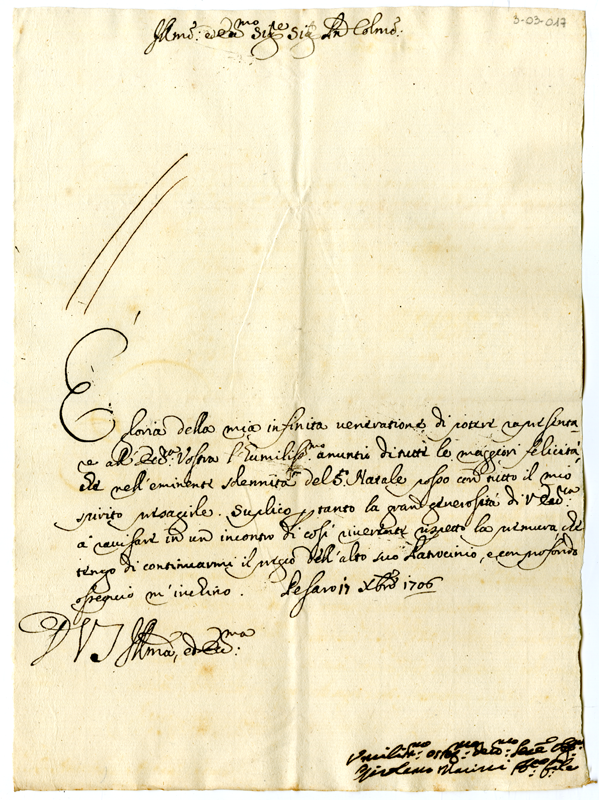 3-03-017
Illmo: ed Eccmo Sigre Sigr Pn Colmo:
È gloria della mia infinita veneratione di potere rapresenta
re all' Eccza Vostra l'humilissmo anuntio di tutte le maggiori felicità,
che nell'eminente solennità del S. Natale posso con tutto il mio
spirito presagirle. Suplico ptanto la grand generosità di V Ecc:za
a ravisare in un incontro di così riverente rispetto la premura che
tengo di continuarmi il pregio dell'alto suo Patrocinio, e con profondo
ossequio m'inchino. Pesaro 17 Xbre 1706
D V S Illma, ed Ecc:ma
Humiliss:mo
Girolamo